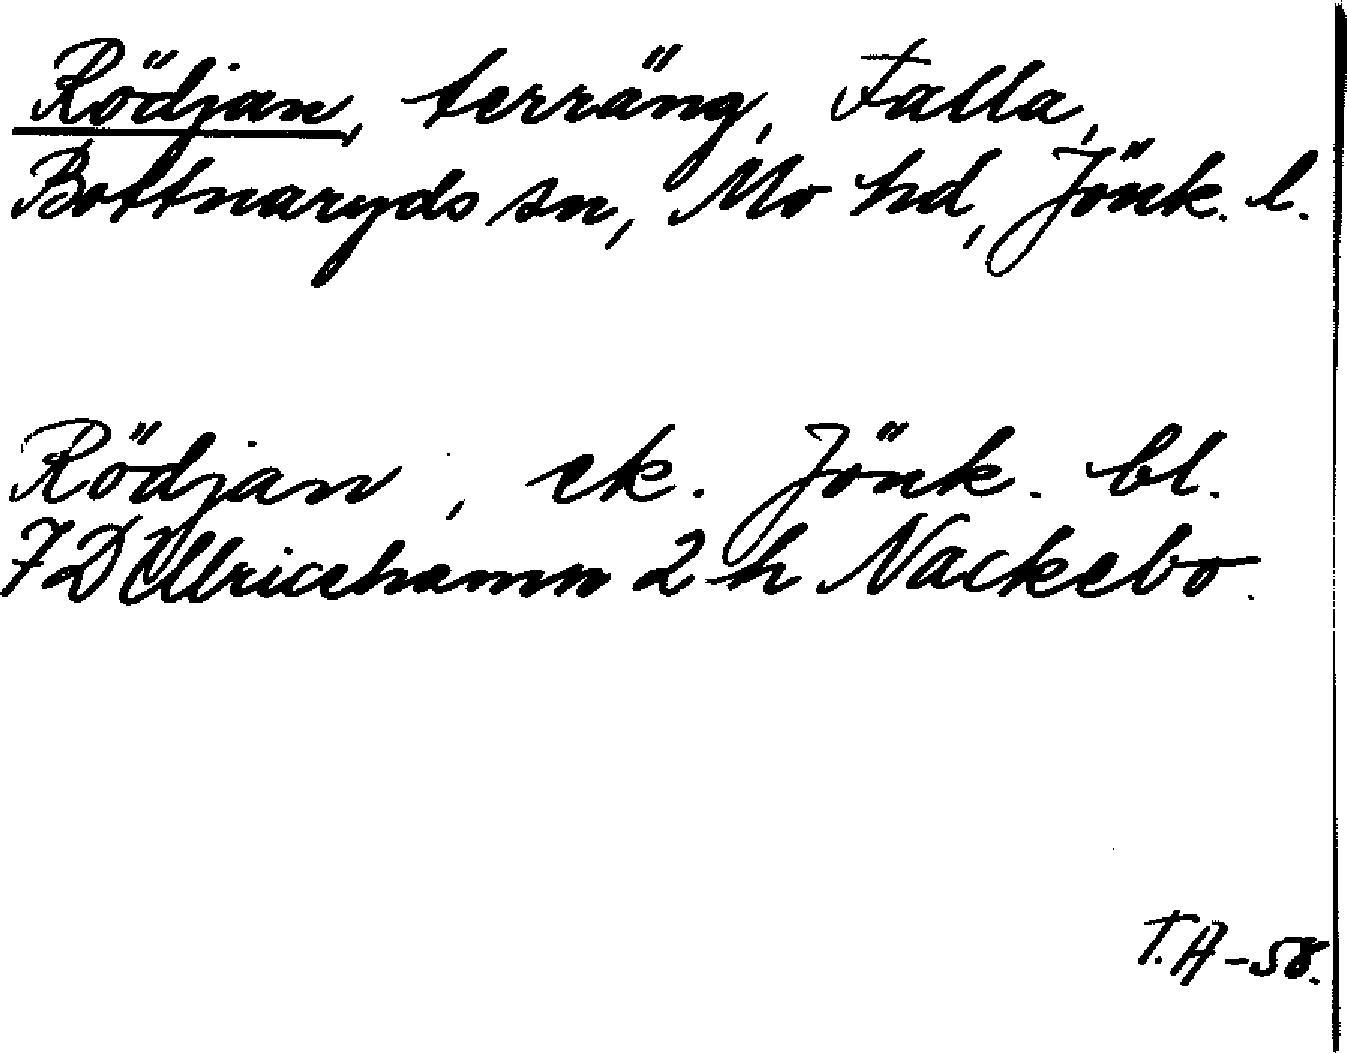 Rödjan, terräng, Falla,
Bottnaryds sn, Mo hd, Jönk. l.
Rödjan, ek. Jönk. bl.
7D Ulricehamn 2 h Nackebo.
T.A-58.